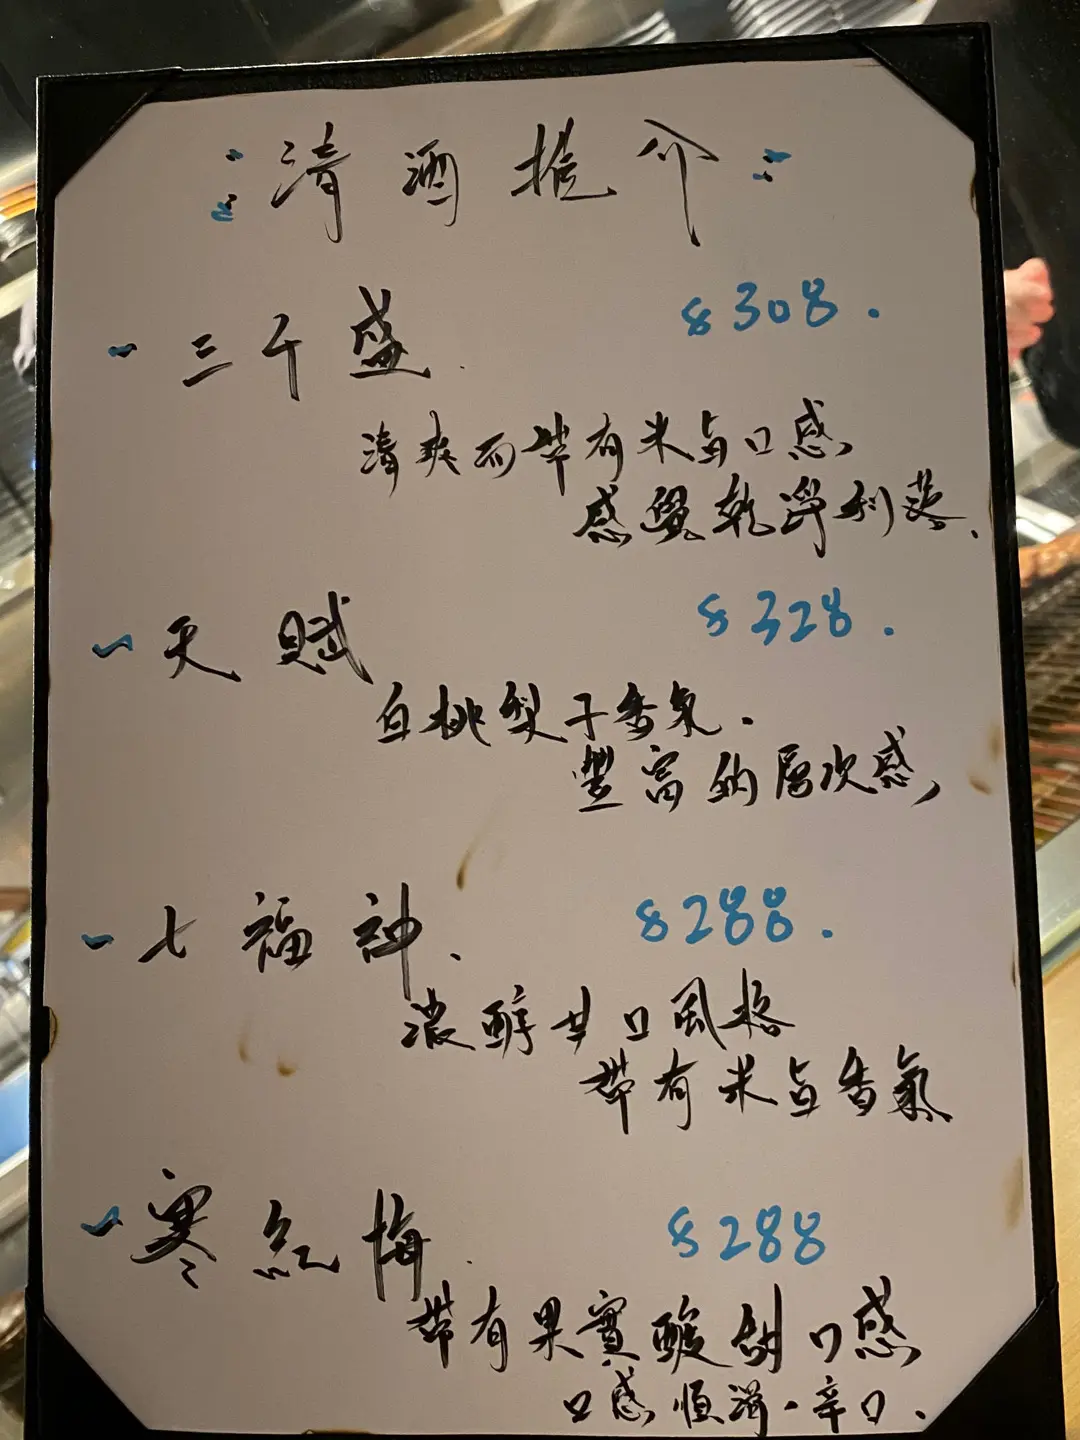 清酒推介
三千盛. $308.
清爽而帶有米旨口感,
感覺乾淨利落.
天賦 $328.
白桃梨子香氣.
豐富的層次感,
七福神. $288.
濃醇甘口風格
帶有米旨香氣
寒紅梅. $288
帶有果實酸甜口感
口感順滑、辛口.